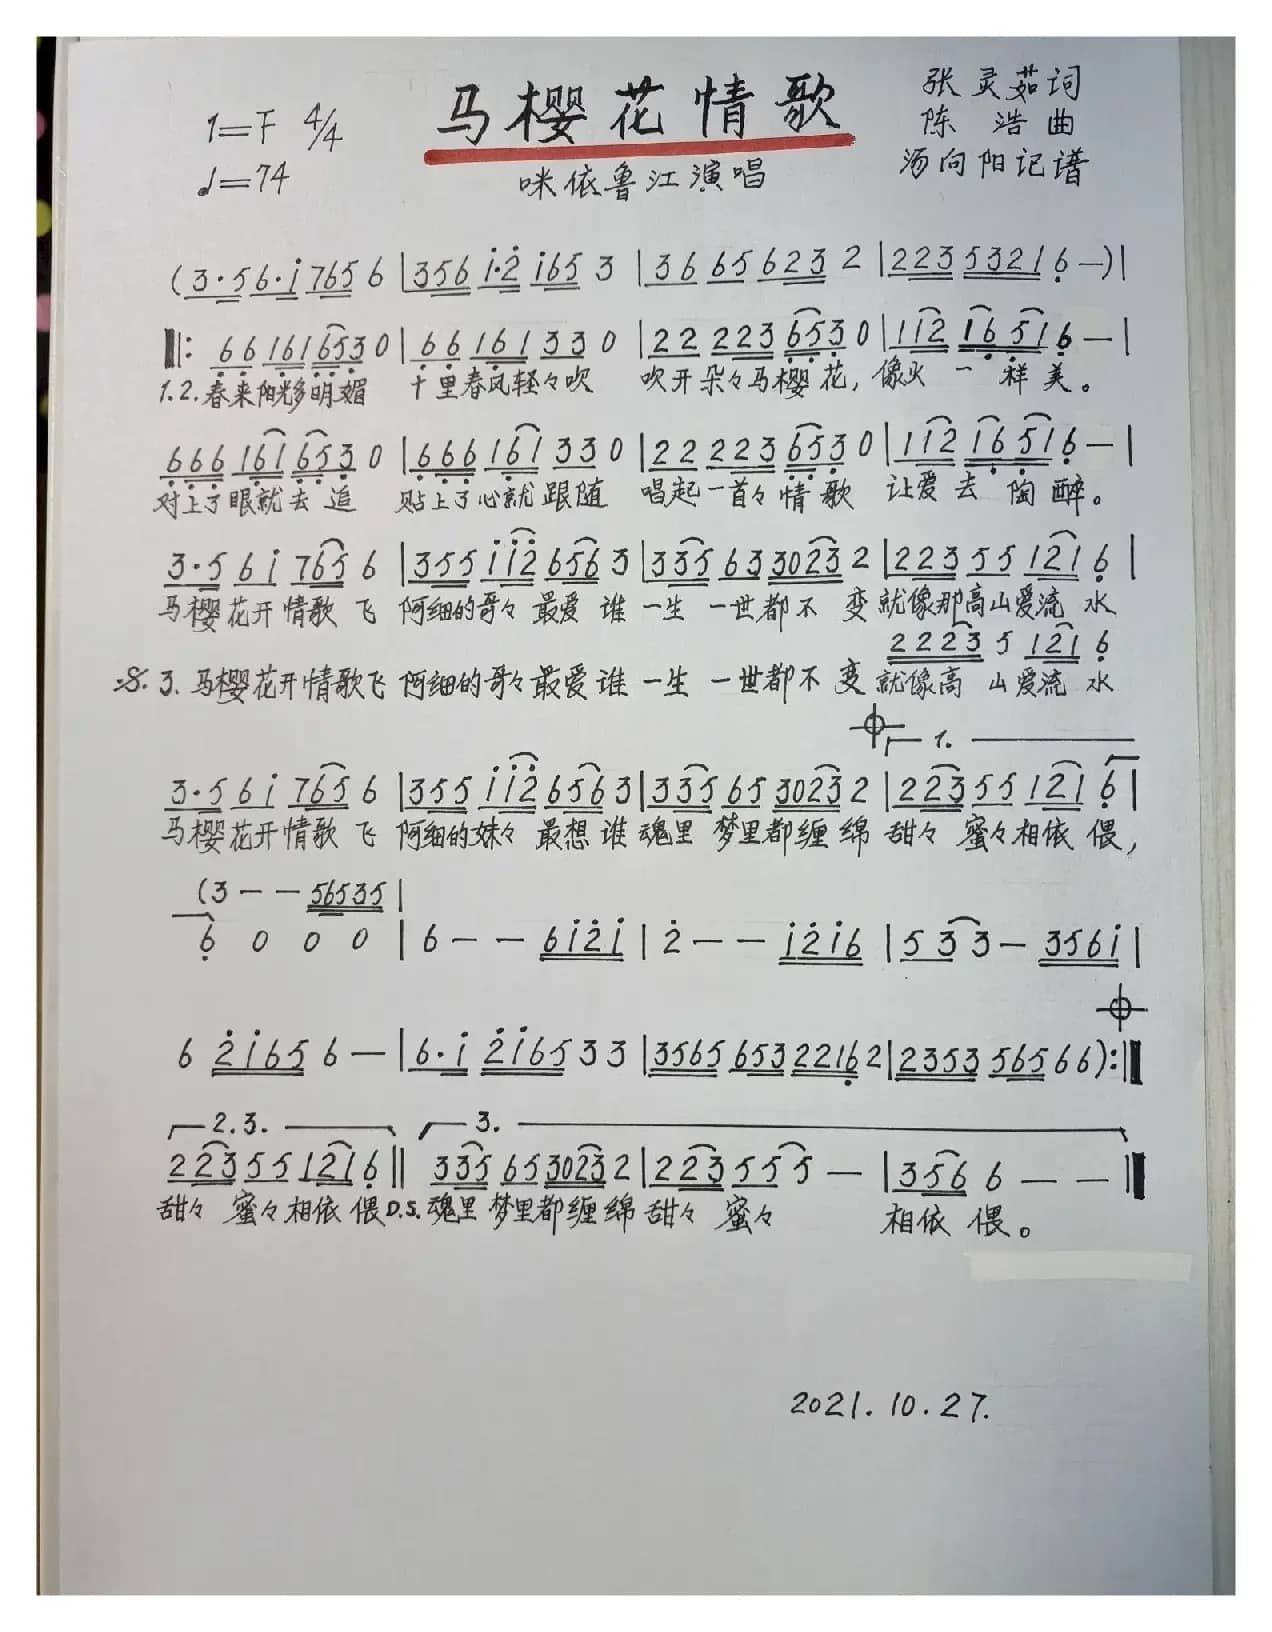 马樱花情歌
1=F 4/4
♩=74
咪依鲁江演唱
张灵茹词
陈浩曲
汤向阳记谱
(3·56·i 7656 | 356 i·2̇ i65 3 | 36 65 623 2 | 223 5321 6̣ —) |
‖: 6̣6̣ 16̣1 6̣5̣3̣ 0 | 6̣6̣ 16̣1 33 0 | 22 223 6̣5̣3̣ 0 | 112 16̣ 5̣1 6̣ — |
1.2.春来阳光多明媚 十里春风轻々吹 吹开朵々马樱花,像火一样美。
6̣6̣6̣ 16̣1 6̣5̣3̣ 0 | 6̣6̣6̣ 16̣1 33 0 | 22 223 6̣5̣3̣ 0 | 112 16̣ 5̣1 6̣ — |
对上了眼就去追 贴上了心就跟随 唱起一首々情歌 让爱去陶醉。
3·5 6i 765 6 | 355 ii2̇ 656 3 | 335 63 3023 2 | 223 55 121 6̣ |
马樱花开情歌飞 阿细的哥々最爱谁 一生一世都不变 就像那高山爱流水
2223 5 121 6̣
𝄋. 3. 马樱花开情歌飞 阿细的哥々最爱谁 一生一世都不变 就像高山爱流水
1.
3·5 6i 765 6 | 355 ii2̇ 656 3 | 335 65 3023 2 | 223 55 121 6̣ |
马樱花开情歌飞 阿细的妹々最想谁 魂里梦里都缠绵 甜々蜜々相依偎,
(3 — — 56535 |
6̣ 0 0 0 | 6 — — 6i2̇i | 2̇ — — i2̇i6 | 5 3 3 — 356i |
6 2̇i65 6 — | 6·i 2̇i65 33 | 3565 653 2216̣ 2 | 2353 565 66) :‖
2.3. 3.
223 55 121 6̣ ‖ 335 65 3023 2 | 223 55 5 — | 356 6 — — ‖
甜々蜜々相依偎 D.S.魂里梦里都缠绵 甜々蜜々 相依偎。
2021.10.27.